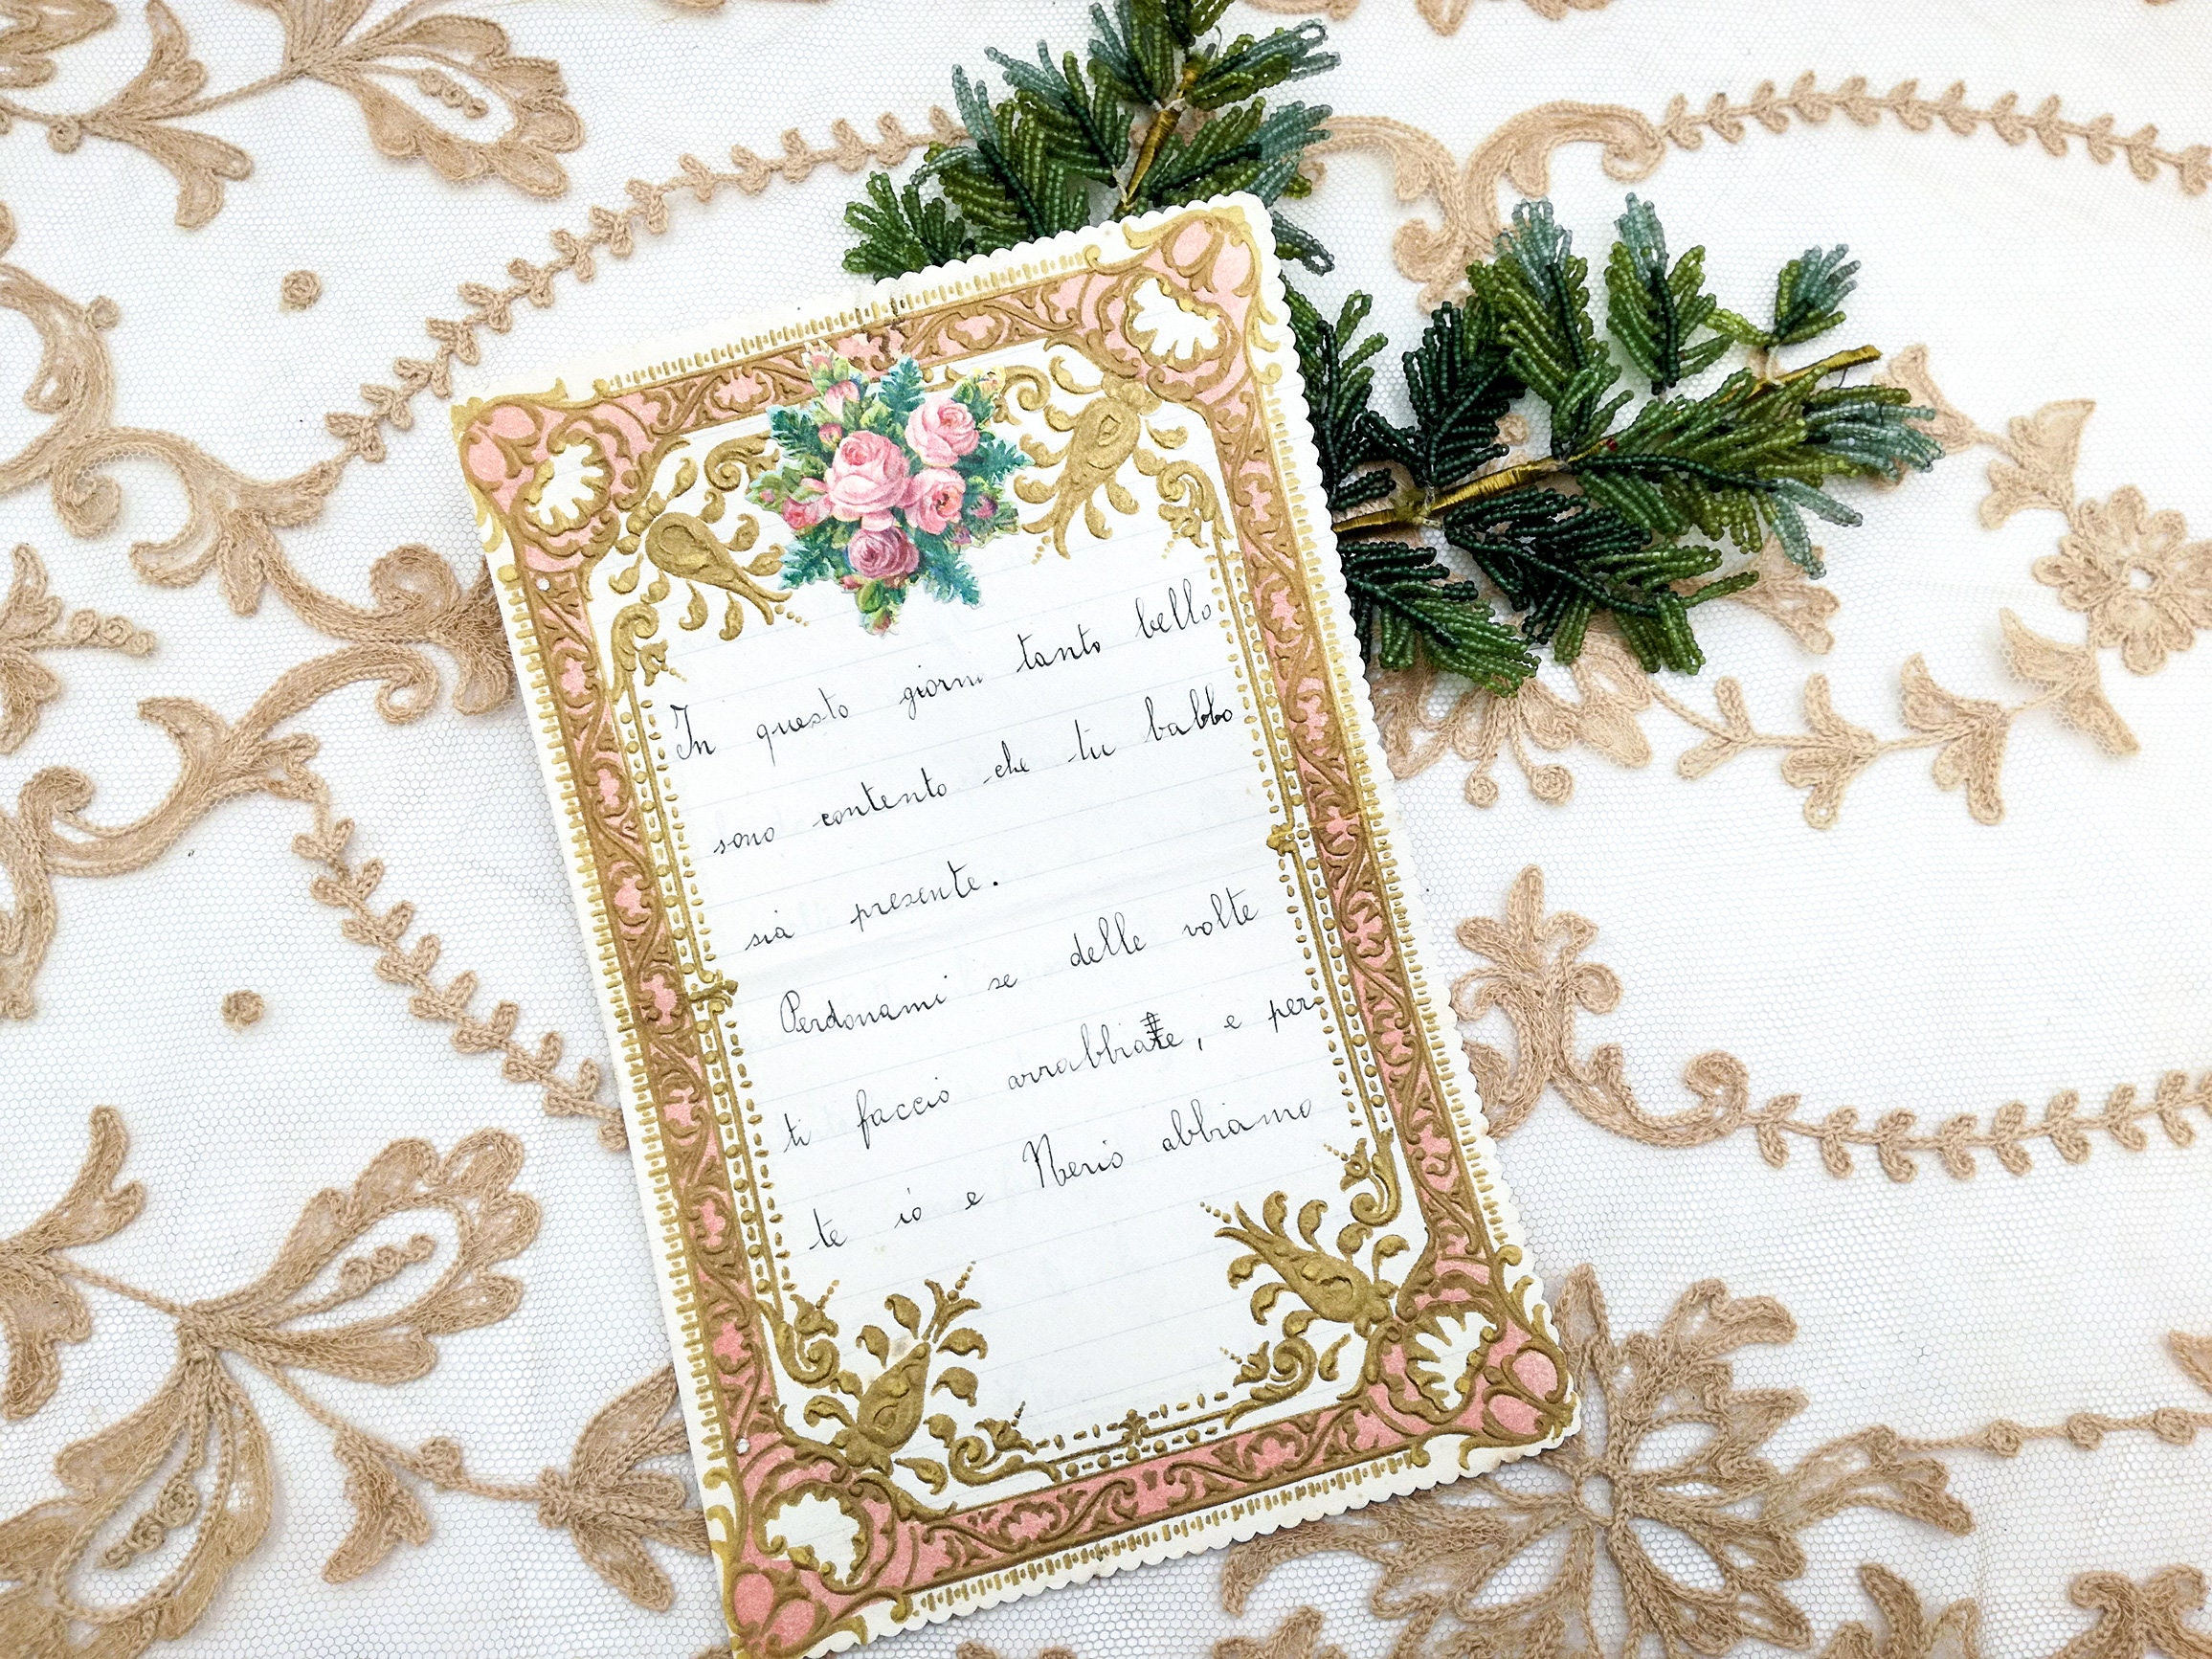 In questo giorno tanto bello
sono contento che tu babbo
sia presente.
Perdonami se delle volte
ti faccio arrabbiare, e per
te io e Nerio abbiamo